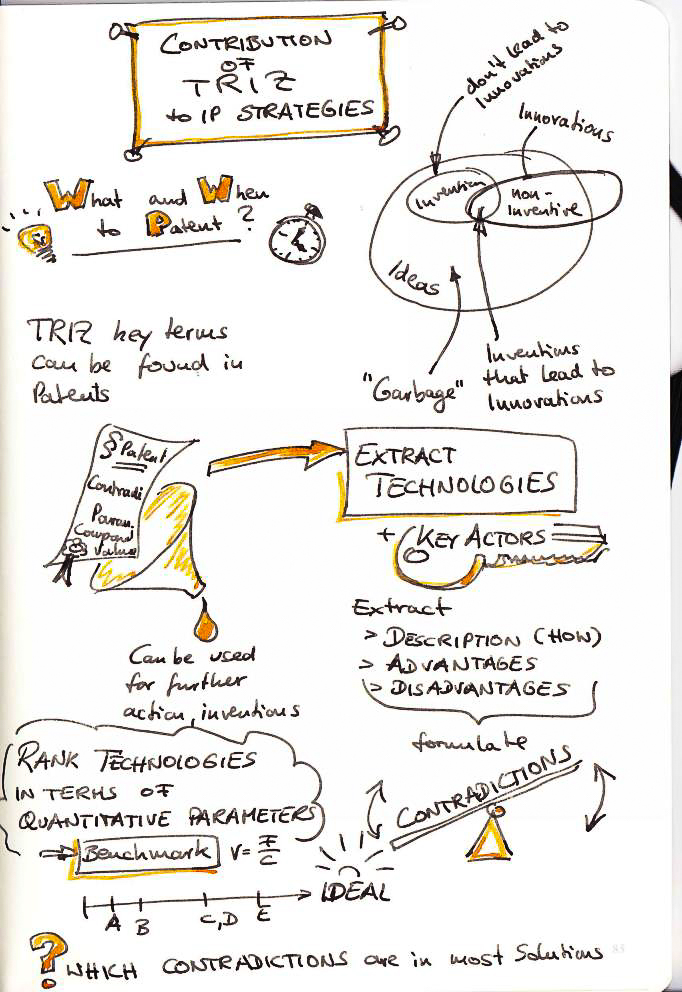 CONTRIBUTION
OF
TRIZ
to IP STRATEGIES
don't lead to
Innovations
Innovations
Invention
non-
inventive
Ideas
"Garbage"
Inventions
that lead to
Innovations
What and When
to Patent?
TRIZ key terms
can be found in
Patents
§ Patent
Contradi
Param.
Compond
Values
EXTRACT
TECHNOLOGIES
+ KEY ACTORS
Extract
> DESCRIPTION (HOW)
> ADVANTAGES
> DISADVANTAGES
formulate
CONTRADICTIONS
Can be used
for further
action, inventions
RANK TECHNOLOGIES
IN TERMS OF
QUANTITATIVE PARAMETERS
Benchmark V=F/C
A B C,D E IDEAL
? WHICH CONTRADICTIONS are in most Solutions
85